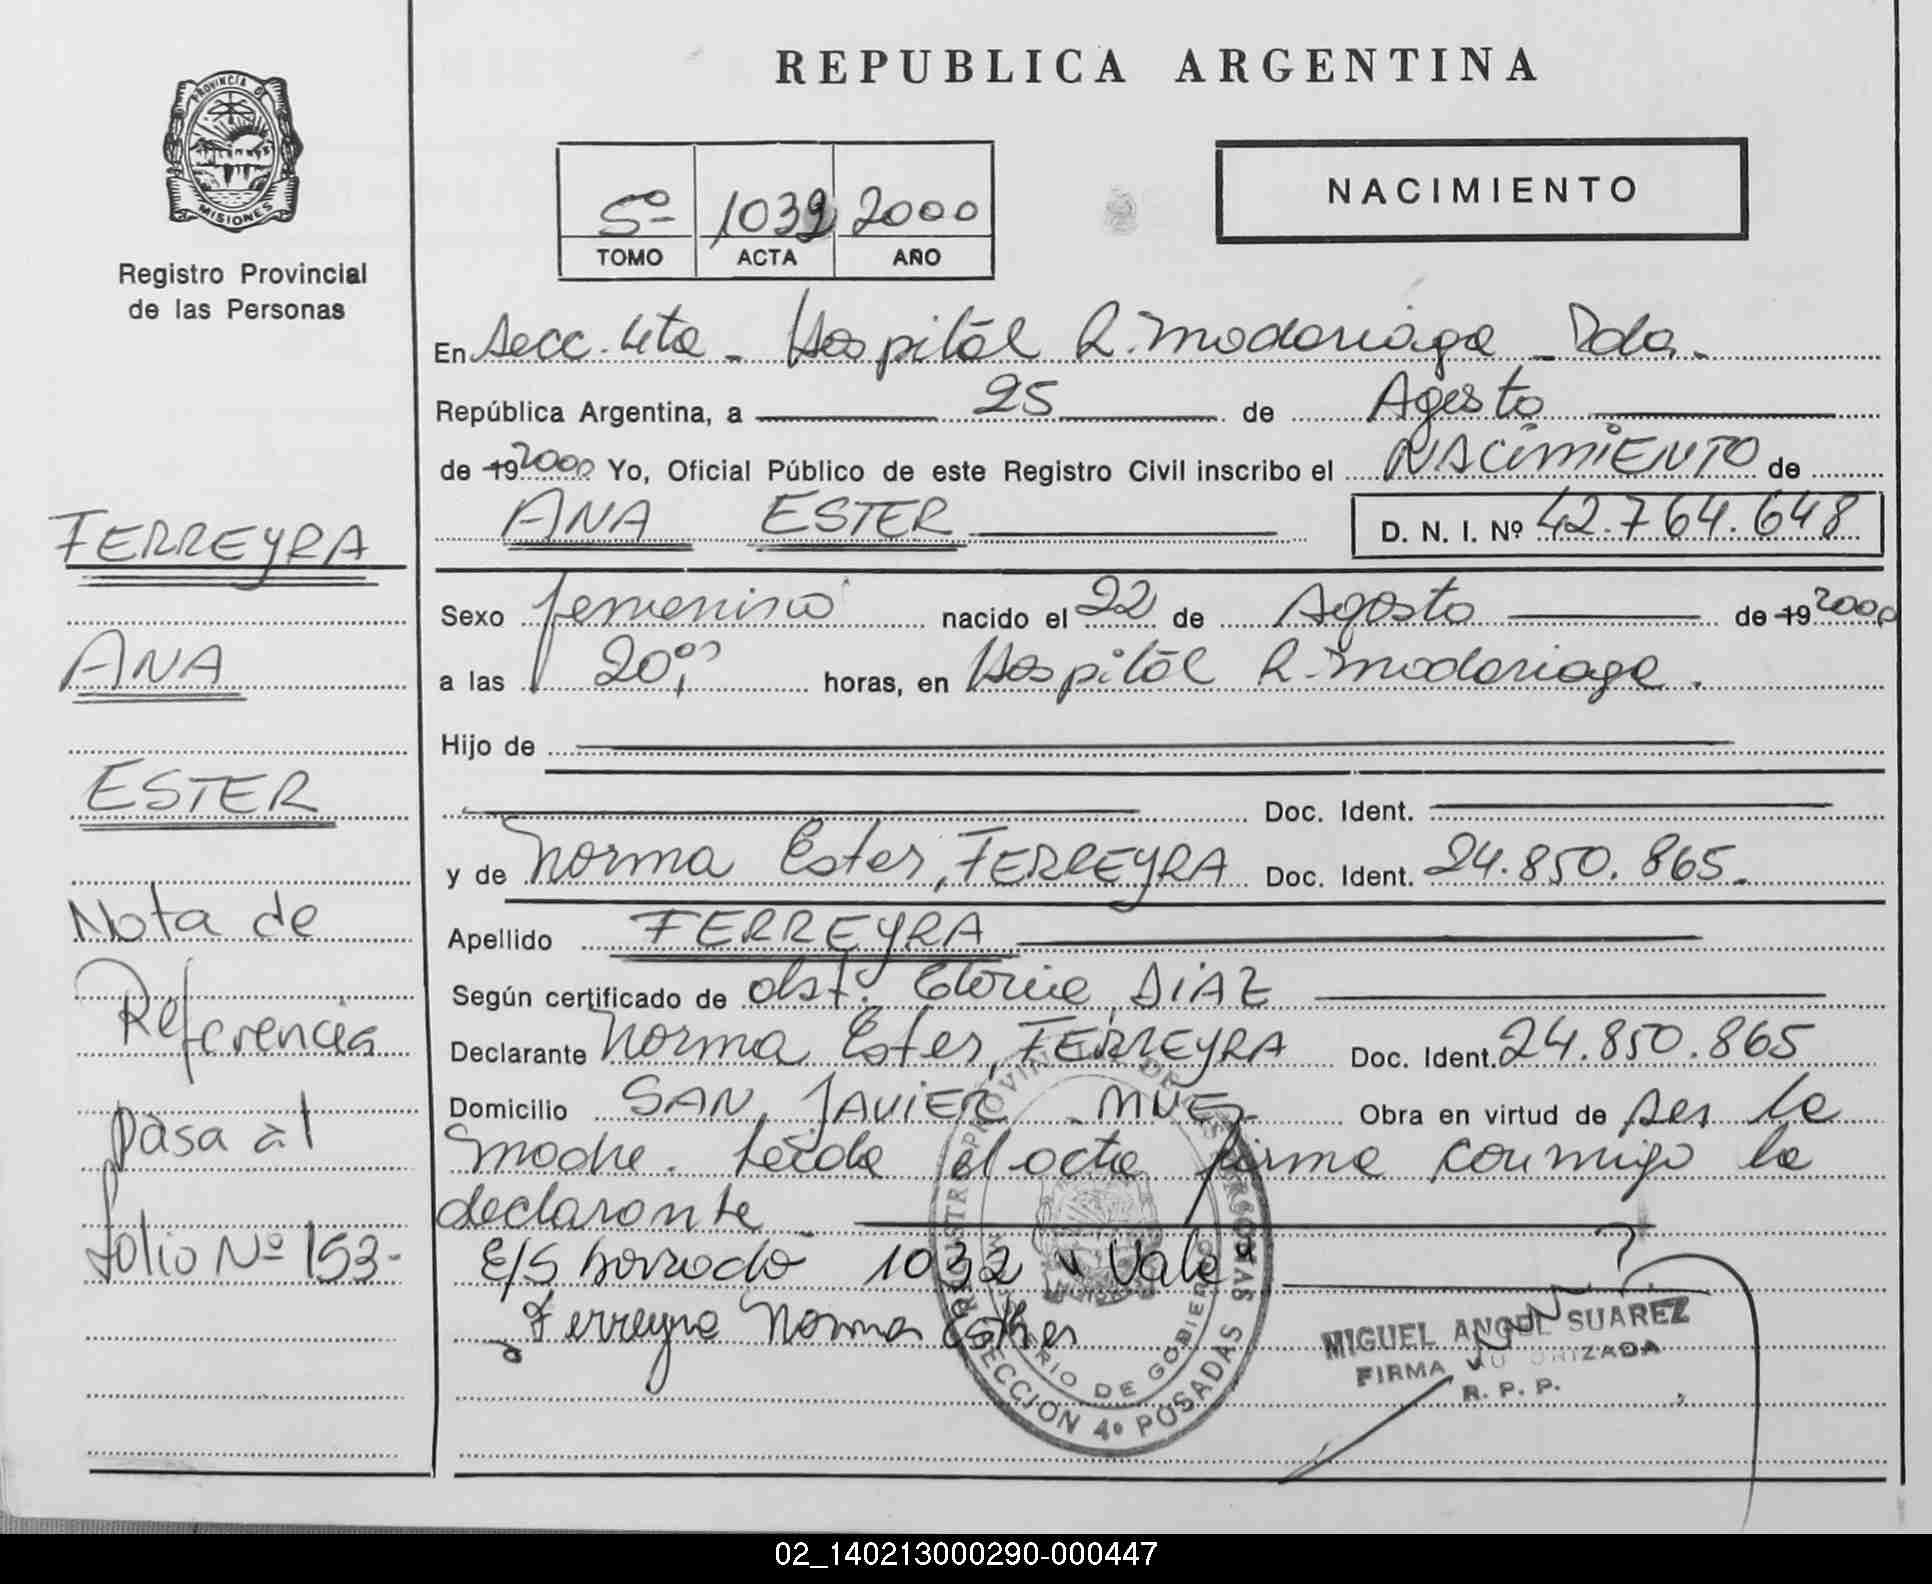 REPUBLICA ARGENTINA
PROVINCIA DE
MISIONES
Registro Provincial
de las Personas
5º 1032 2000
TOMO ACTA AÑO
NACIMIENTO
En Secc. 4ta - Hospital R. Madariaga - Pdas.
República Argentina, a 25 de Agosto
de 19 2000 Yo, Oficial Público de este Registro Civil inscribo el NACIMIENTO de
ANA ESTER D. N. I. Nº 42.764.648
Sexo femenino nacido el 22 de Agosto de 19 2000
a las 20,00 horas, en Hospital R. Madariaga.
Hijo de
Doc. Ident.
y de Norma Ester, FERREYRA Doc. Ident. 24.850.865.
Apellido FERREYRA
Según certificado de obst. Gloria DIAZ
Declarante Norma Ester, FERREYRA Doc. Ident. 24.850.865
Domicilio SAN JAVIER - MNES. Obra en virtud de ser la
madre. Leída el acta firma conmigo la
declarante
E/S borrado 1032 " Vale
Ferreyra Norma Esther
FERREYRA
ANA
ESTER
Nota de
Referencia
pasa al
folio Nº 153-
SECCION 4º POSADAS
MINISTERIO DE GOBIERNO
MIGUEL ANGEL SUAREZ
FIRMA AUTORIZADA
R. P. P.
02_140213000290-000447